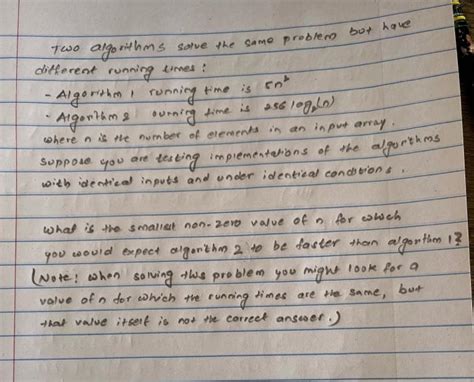 Two algorithms solve the same problem but have
different running times:
- Algorithm 1 running time is 5n²
- Algorithm 2 running time is 256 log₂(n)
where n is the number of elements in an input array.
suppose you are testing implementations of the algorithms
with identical inputs and under identical conditions.
what is the smallest non-zero value of n for which
you would expect algorithm 2 to be faster than algorithm 1?
(Note: when solving this problem you might look for a
value of n for which the running times are the same, but
that value itself is not the correct answer.)